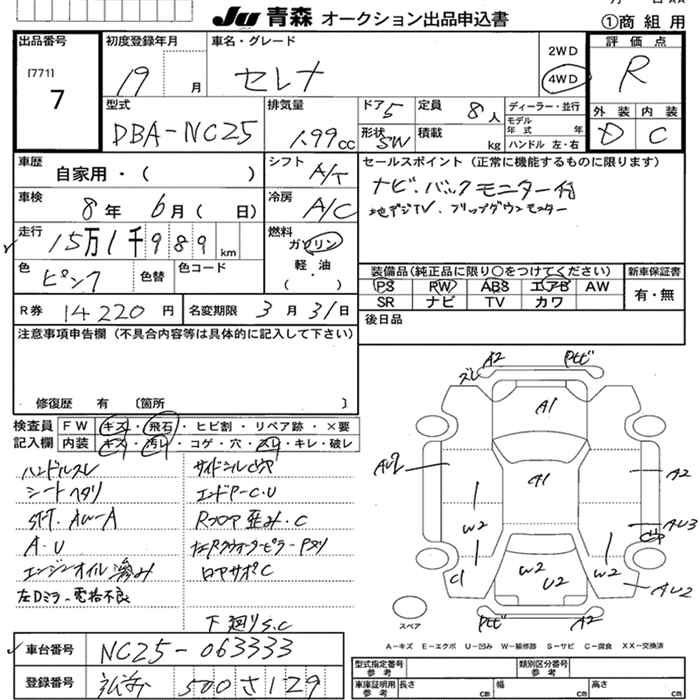 Ju 青森 オークション出品申込書
①商 組 用
出品番号
[771]
7
初度登録年月
19 月
車名・グレード
セレナ
2WD
4WD
評価点
R
型式
DBA-NC25
排気量
1.99cc
ドア 5
定員 8人
形状 SW
積載 kg
ディーラー・並行
モデル年式 年
ハンドル 左・右
外装 内装
D C
車歴
自家用・( )
シフト A/T
セールスポイント(正常に機能するものに限ります)
ナビ.バックモニター付
地デジTV.フリップダウンモニター
車検
8年 6月( 日)
冷房 A/C
走行
15万1千989km
燃料
ガソリン
軽・油
( ・ )
色
ピンク
色替
色コード
装備品(純正品に限り○をつけてください)
新車保証書
PS RW ABS エアB AW
SR ナビ TV カワ
有・無
R券 14220円
名変期限 3月31日
後日品
注意事項申告欄(不具合内容等は具体的に記入して下さい)
修復歴 有 〔箇所 〕
検査員
記入欄
FW キズ・飛石・ヒビ割・リペア跡・×要
内装 キズ・汚レ・コゲ・穴・スレ・キレ・破レ
ハンドルスレ
シートヘタリ
A.U
エンジンオイル滲み
左Dミラー電格不良
エンドP-C.U
Rフロア歪み.C
ロアサポC
下廻りS.C
A2
A1
A1
A2
W2
W2
W2
U2
C1
AU3
AU2
A2
スペア
A-キズ E-エクボ U-凹み W-補修跡 S-サビ C-腐食 XX-交換済
車台番号
NC25-063333
登録番号
500 さ 129
型式指定番号
参考
類別区分番号
参考
車庫証明用
参考
長さ cm
幅 cm
高さ cm